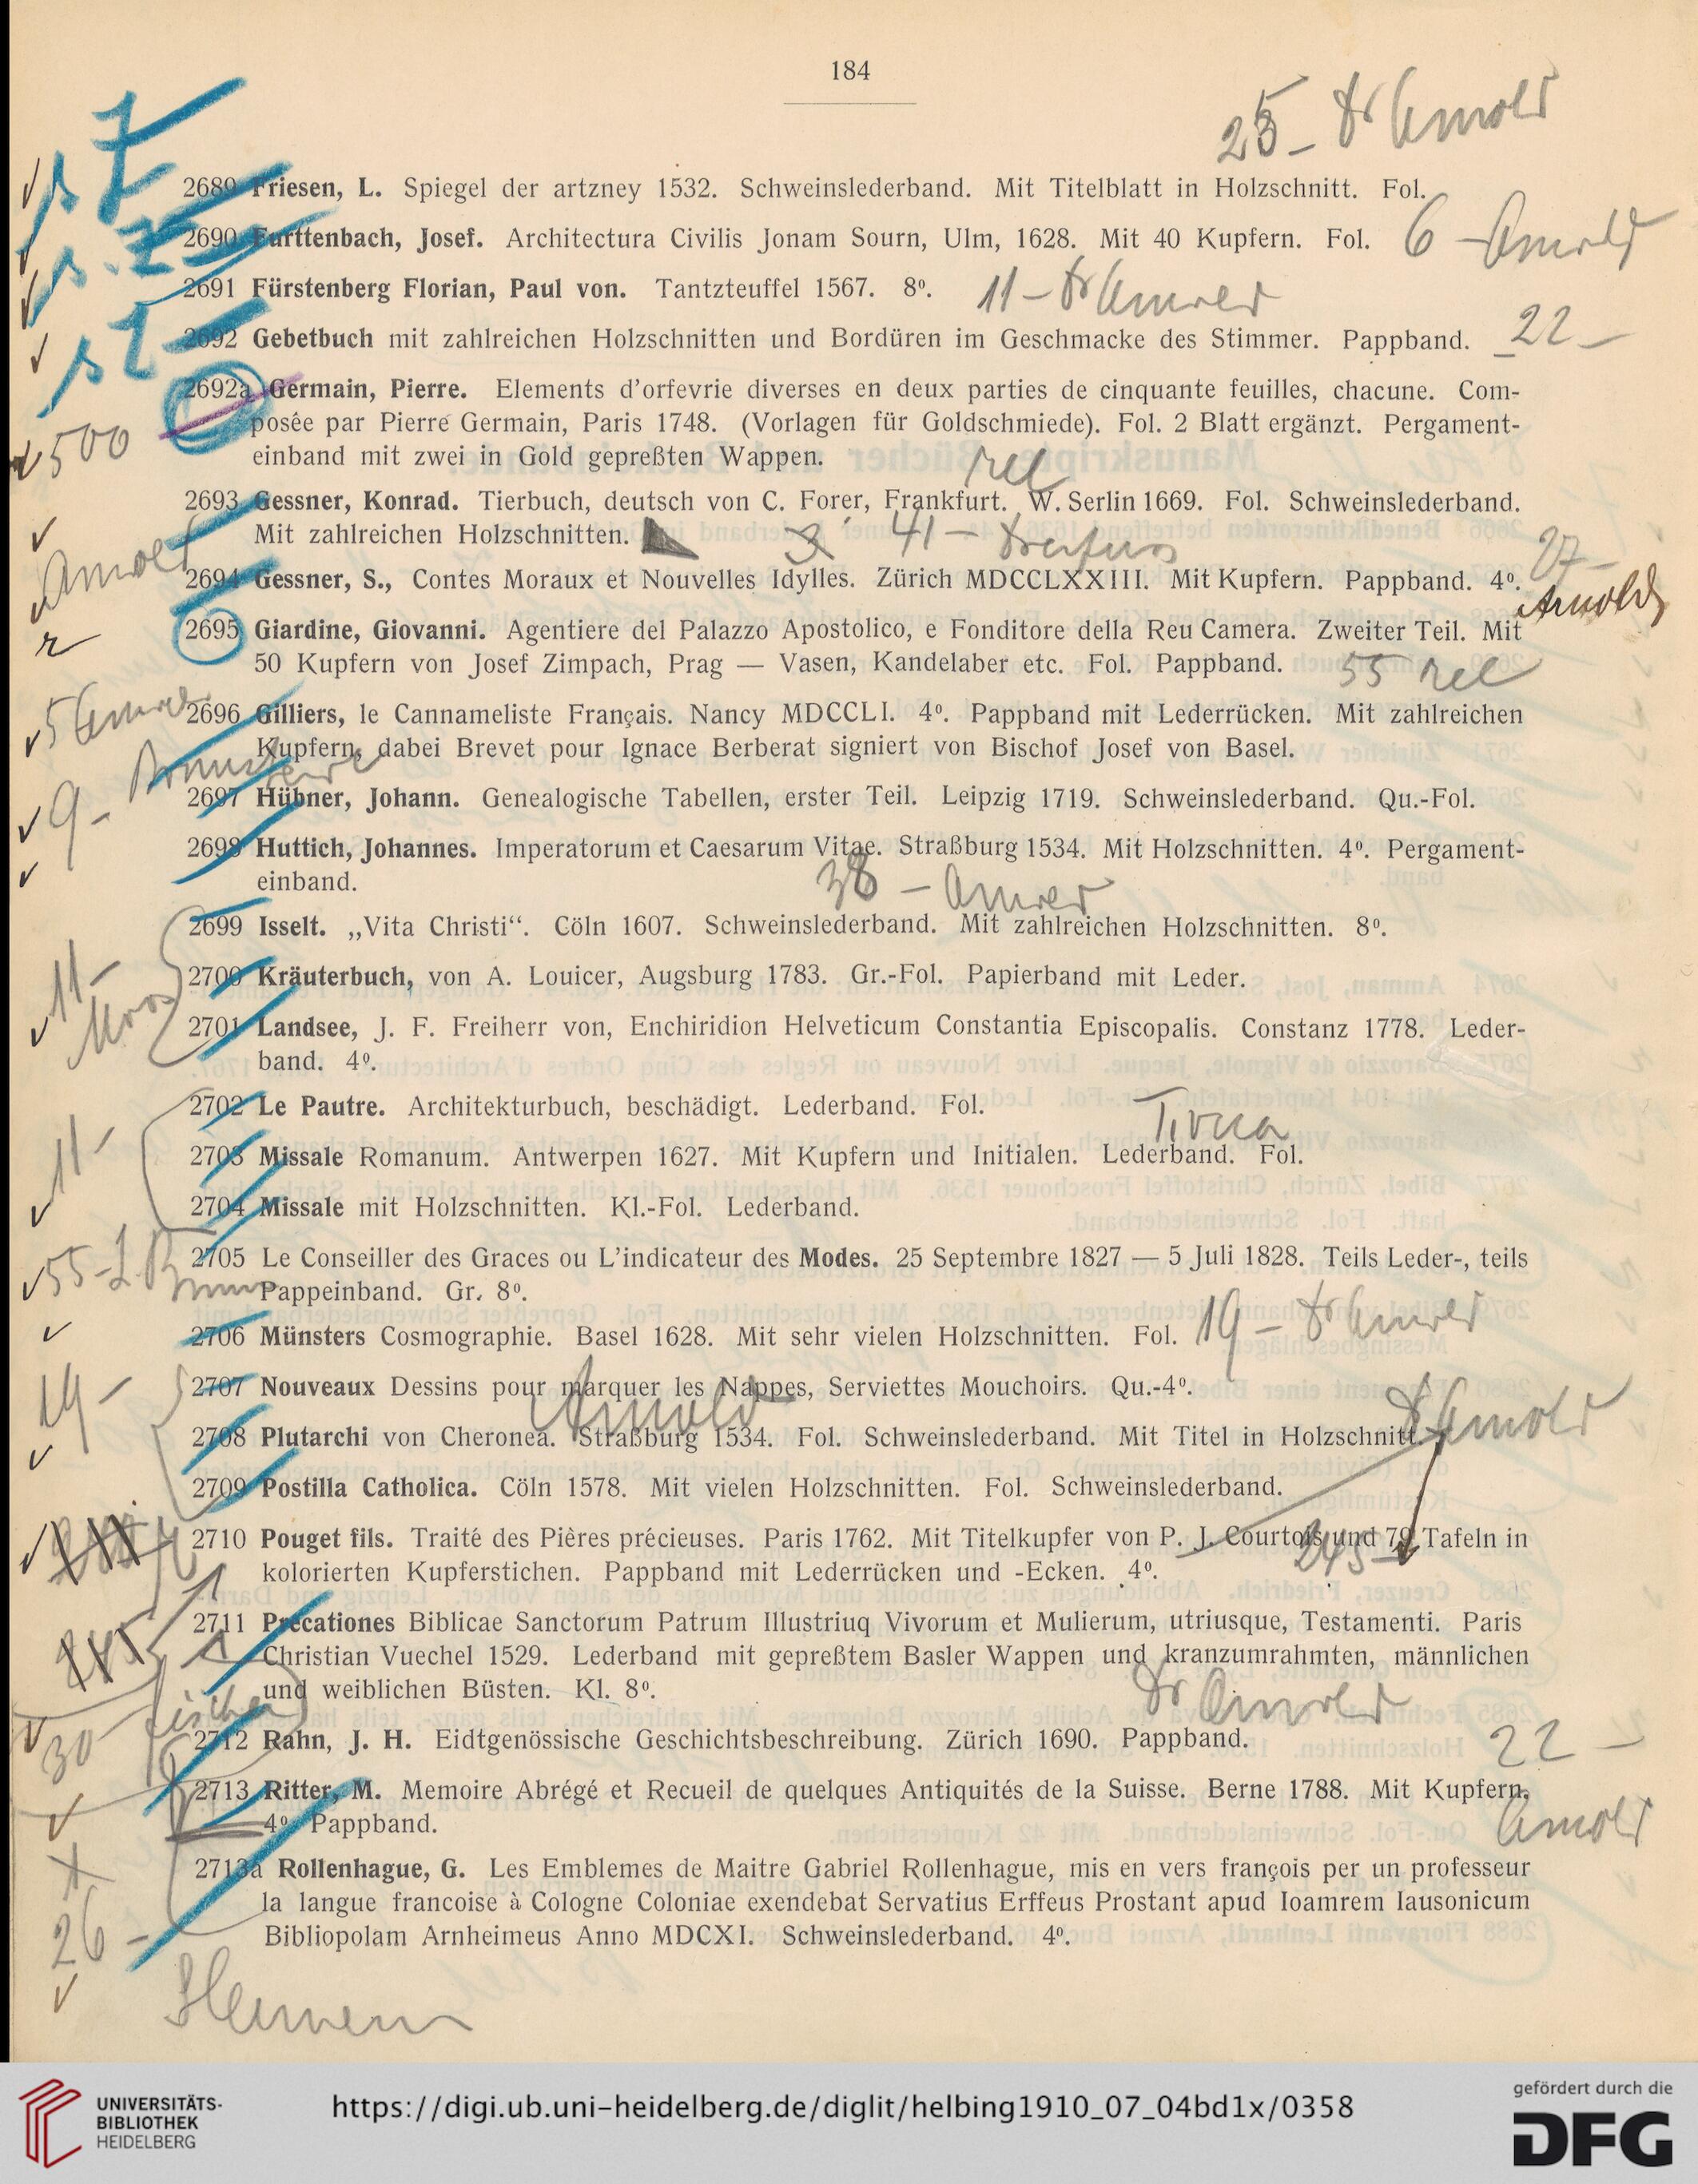 184
25 – Dr Arnold
2689 Friesen, L. Spiegel der artzney 1532. Schweinslederband. Mit Titelblatt in Holzschnitt. Fol.
2690 Furttenbach, Josef. Architectura Civilis Jonam Sourn, Ulm, 1628. Mit 40 Kupfern. Fol. 6 – Arnold
2691 Fürstenberg Florian, Paul von. Tantzteuffel 1567. 8º. 11 – Dr Arnold
2692 Gebetbuch mit zahlreichen Holzschnitten und Bordüren im Geschmacke des Stimmer. Pappband. 22 –
2692a Germain, Pierre. Elements d’orfevrie diverses en deux parties de cinquante feuilles, chacune. Com-
posée par Pierre Germain, Paris 1748. (Vorlagen für Goldschmiede). Fol. 2 Blatt ergänzt. Pergament-
500
einband mit zwei in Gold gepreßten Wappen. rel
2693 Gessner, Konrad. Tierbuch, deutsch von C. Forer, Frankfurt. W. Serlin 1669. Fol. Schweinslederband.
Mit zahlreichen Holzschnitten. 41 – Dreifuss
27 –
Arnold
2694 Gessner, S., Contes Moraux et Nouvelles Idylles. Zürich MDCCLXXIII. Mit Kupfern. Pappband. 4º.
Arnold
2695 Giardine, Giovanni. Agentiere del Palazzo Apostolico, e Fonditore della Reu Camera. Zweiter Teil. Mit
r
50 Kupfern von Josef Zimpach, Prag — Vasen, Kandelaber etc. Fol. Pappband. 55 rel
5 Arnold
2696 Gilliers, le Cannameliste Français. Nancy MDCCLI. 4º. Pappband mit Lederrücken. Mit zahlreichen
Kupfern, dabei Brevet pour Ignace Berberat signiert von Bischof Josef von Basel.
9 –
2697 Hübner, Johann. Genealogische Tabellen, erster Teil. Leipzig 1719. Schweinslederband. Qu.-Fol.
2698 Huttich, Johannes. Imperatorum et Caesarum Vitae. Straßburg 1534. Mit Holzschnitten. 4º. Pergament-
einband. 38 – Arnold
2699 Isselt. „Vita Christi“. Cöln 1607. Schweinslederband. Mit zahlreichen Holzschnitten. 8º.
11 –
2700 Kräuterbuch, von A. Louicer, Augsburg 1783. Gr.-Fol. Papierband mit Leder.
2701 Landsee, J. F. Freiherr von, Enchiridion Helveticum Constantia Episcopalis. Constanz 1778. Leder-
band. 4º.
2702 Le Pautre. Architekturbuch, beschädigt. Lederband. Fol.
11 –
2703 Missale Romanum. Antwerpen 1627. Mit Kupfern und Initialen. Lederband. Fol.
2704 Missale mit Holzschnitten. Kl.-Fol. Lederband.
55 –
2705 Le Conseiller des Graces ou L’indicateur des Modes. 25 Septembre 1827 — 5 Juli 1828. Teils Leder-, teils
Pappeinband. Gr. 8º.
2706 Münsters Cosmographie. Basel 1628. Mit sehr vielen Holzschnitten. Fol. 19 – Dr Arnold
19 –
2707 Nouveaux Dessins pour marquer les Nappes, Serviettes Mouchoirs. Qu.-4º.
Arnold
Dr Arnold
2708 Plutarchi von Cheronea. Straßburg 1534. Fol. Schweinslederband. Mit Titel in Holzschnitt.
2709 Postilla Catholica. Cöln 1578. Mit vielen Holzschnitten. Fol. Schweinslederband.
2710 Pouget fils. Traité des Pières précieuses. Paris 1762. Mit Titelkupfer von P. J. Courtois und 79 Tafeln in
245 –
kolorierten Kupferstichen. Pappband mit Lederrücken und -Ecken. 4º.
2711 Precationes Biblicae Sanctorum Patrum Illustriuq Vivorum et Mulierum, utriusque, Testamenti. Paris
245
Christian Vuechel 1529. Lederband mit gepreßtem Basler Wappen und kranzumrahmten, männlichen
und weiblichen Büsten. Kl. 8º. Dr Arnold
30 –
2712 Rahn, J. H. Eidtgenössische Geschichtsbeschreibung. Zürich 1690. Pappband. 22 –
2713 Ritter, M. Memoire Abrégé et Recueil de quelques Antiquités de la Suisse. Berne 1788. Mit Kupfern,
4º Pappband. Arnold
2713a Rollenhague, G. Les Emblemes de Maitre Gabriel Rollenhague, mis en vers françois per un professeur
la langue francoise à Cologne Coloniae exendebat Servatius Erffeus Prostant apud Ioamrem Iausonicum
26 –
Bibliopolam Arnheimeus Anno MDCXI. Schweinslederband. 4º.
UNIVERSITÄTS-
BIBLIOTHEK
HEIDELBERG
https://digi.ub.uni-heidelberg.de/diglit/helbing1910_07_04bd1x/0358
gefördert durch die
DFG